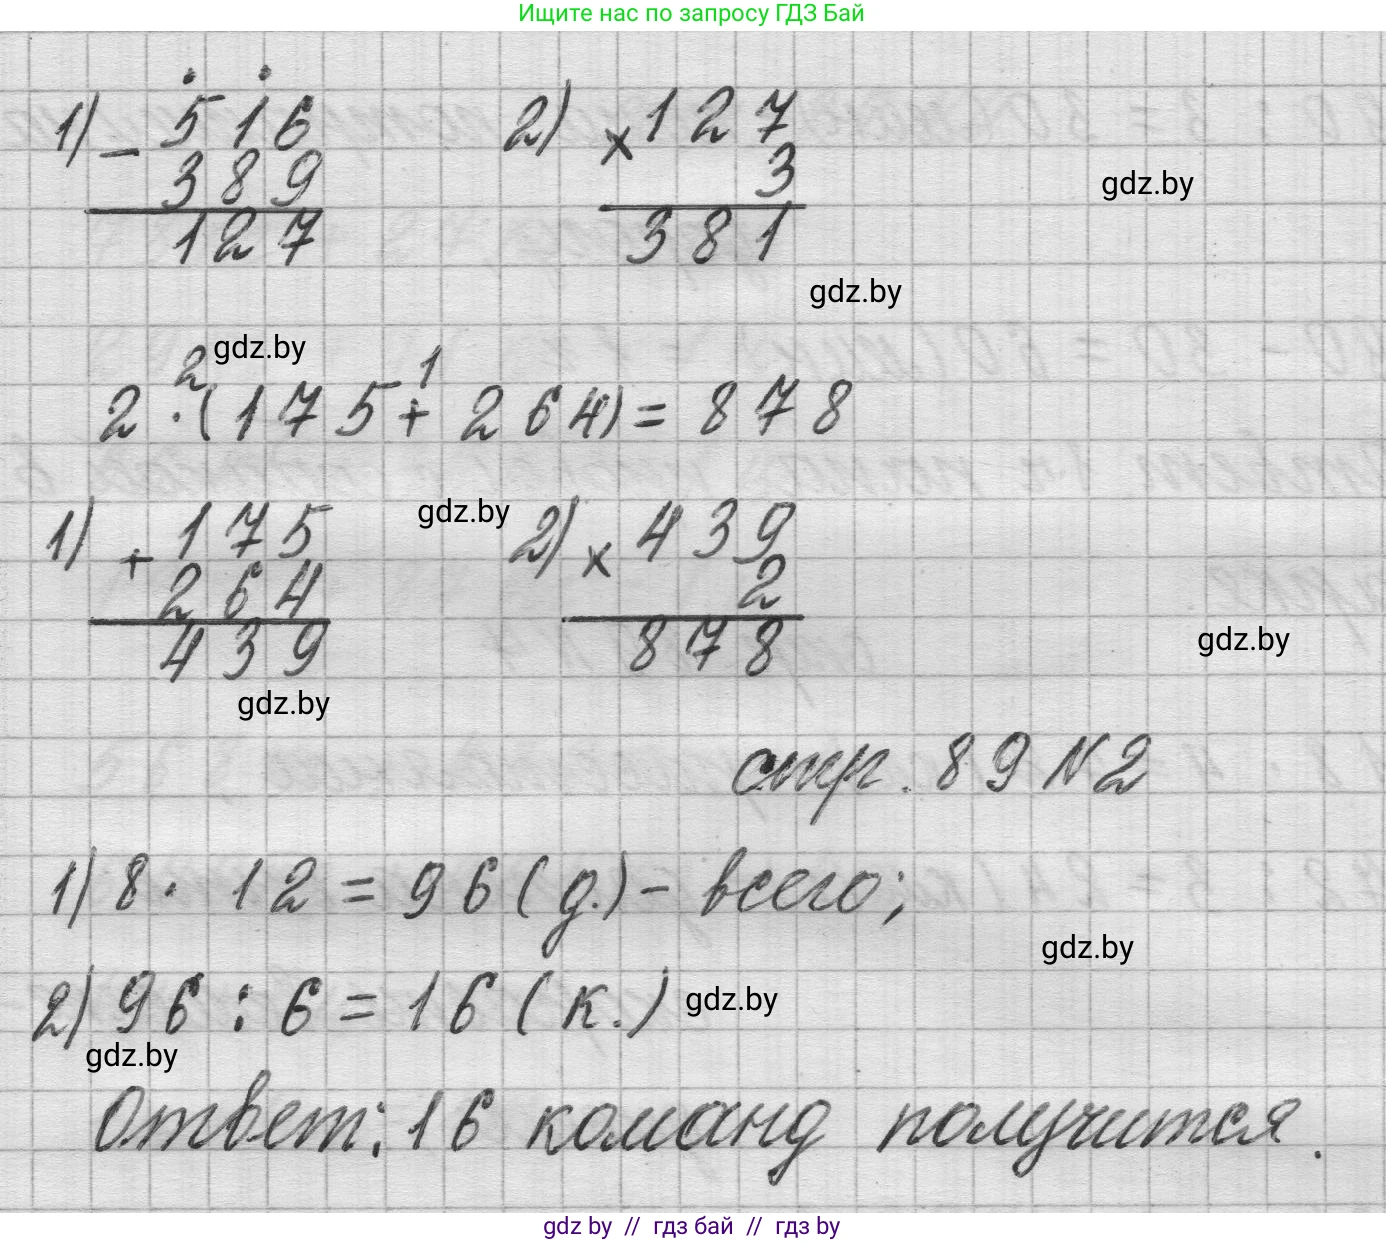 Ищите нас по запросу ГДЗ Бай
1) − 516   2) × 127
389   3
gdz.by
127   381
gdz.by
gdz.by
2   1
2 · (175 + 264) = 878
gdz.by
1) + 175   2) × 439
264   2
439   878
gdz.by
gdz.by
стр. 89 N2
1) 8 · 12 = 96 (д.) - всего;
gdz.by
2) 96 : 6 = 16 (к.)
gdz.by
gdz.by
Ответ: 16 команд получится.
gdz by // гдз бай // гдз by